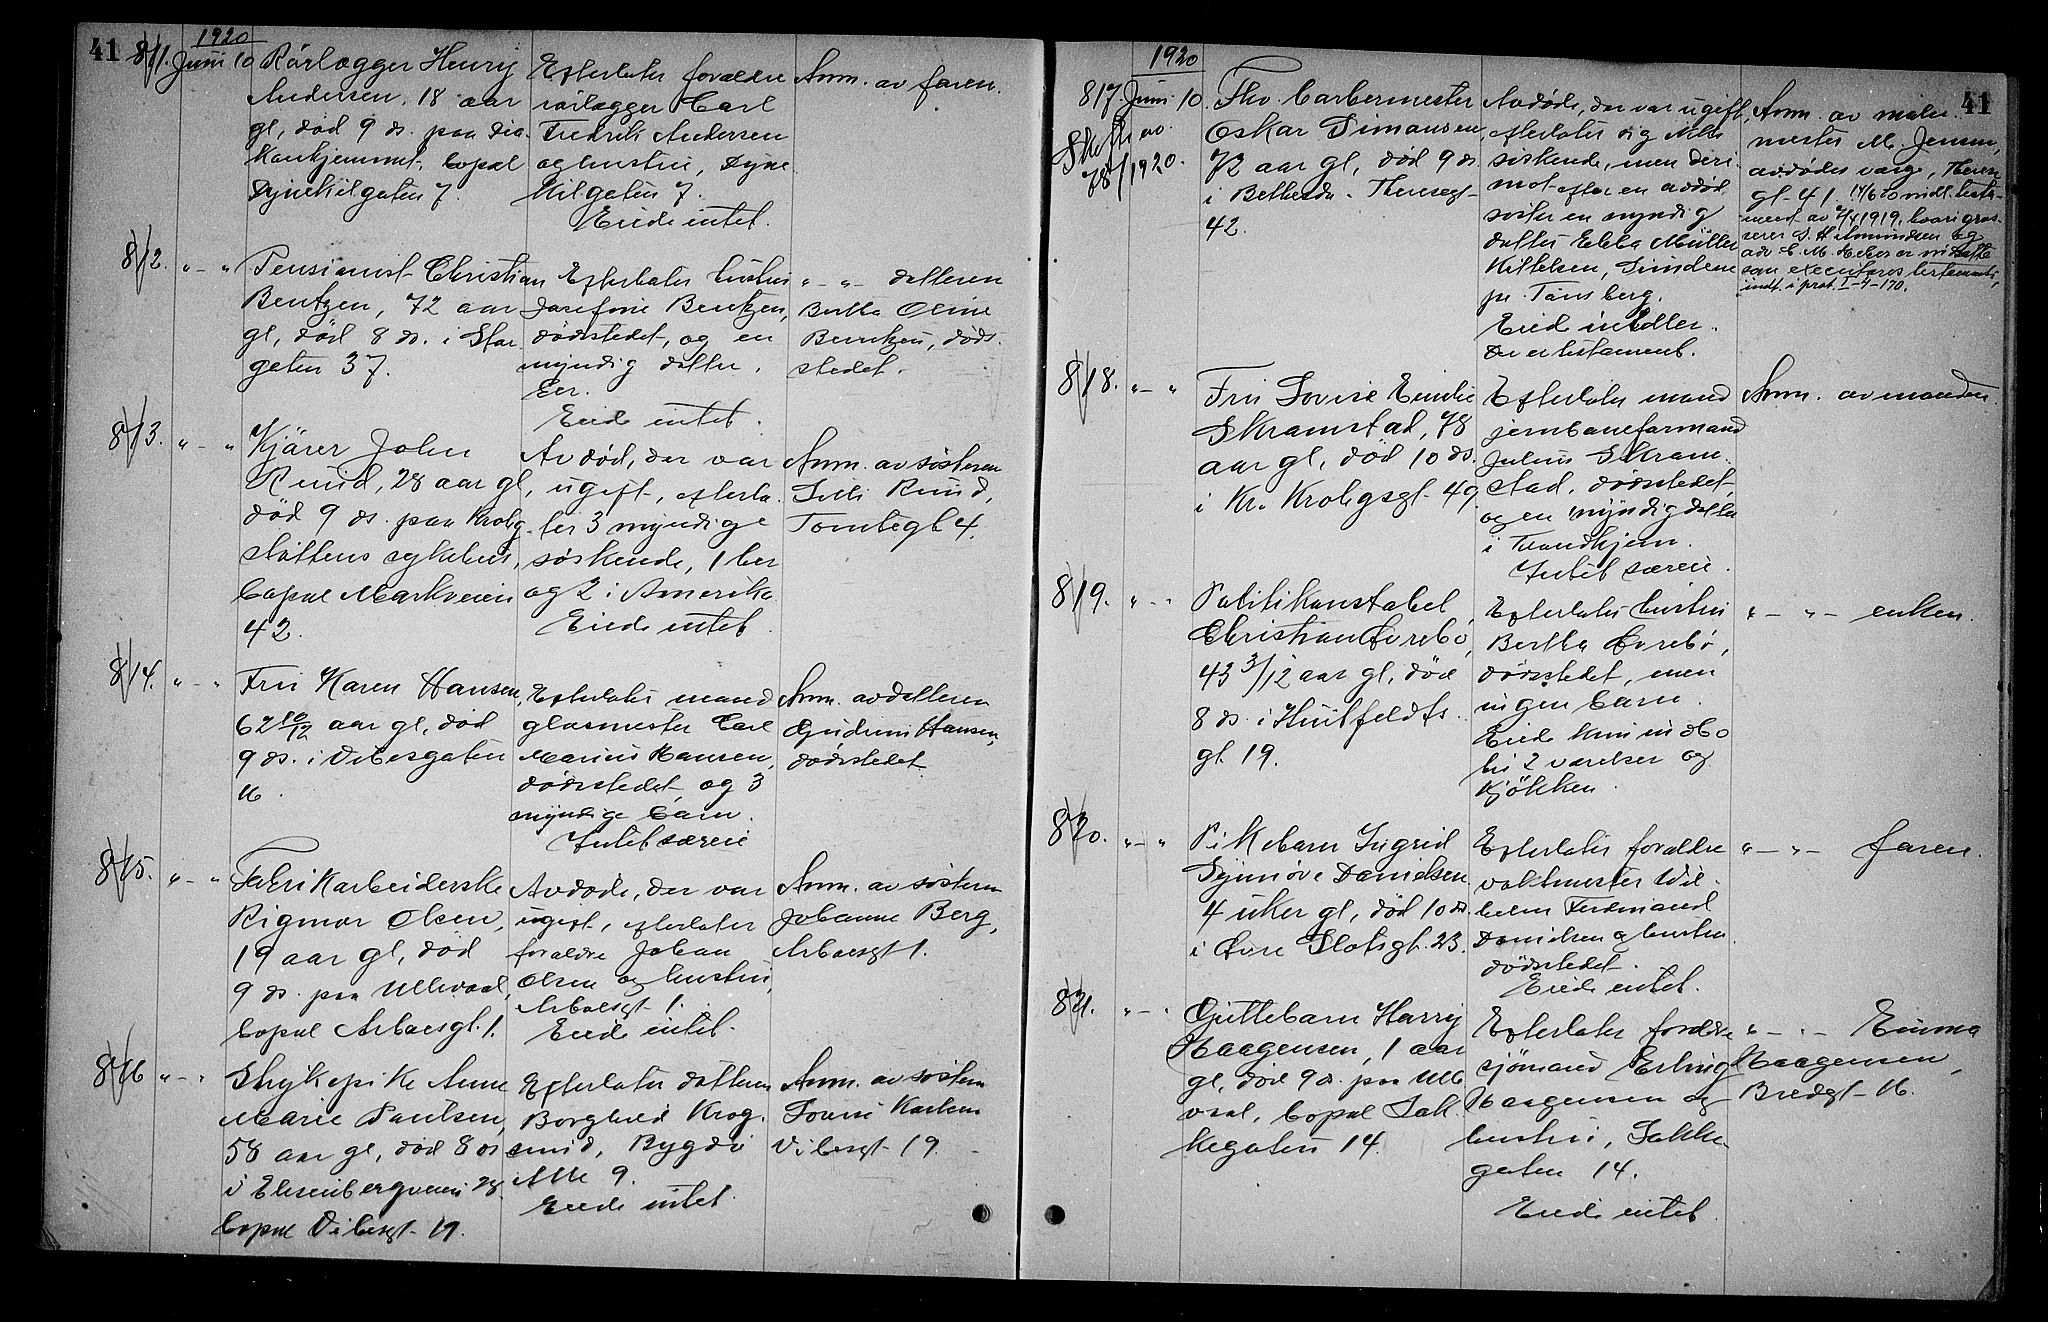 41
1920
811. Juni 10
Rörlægger Henry
Andersen, 18 aar
gl, död 9 ds. paa Dia
konhjemmet, bopæl
Dynekilgaten 7.
Efterlater forældre
rörlægger Carl
Fredrik Andersen
og hustru, Dyne
kilgaten 7.
Eiede intet.
Anm. av faren.
812. " - "
Pensionist Christian
Bentzen, 72 aar
gl, död 8 ds. i Stor
gaten 37.
Efterlater hustru
Josefine Bentzen,
dödsstedet, og en
myndig datter.
Eier.
Eiede intet.
" - " - datteren
Bertha Oline
Bentzen, döds-
stedet.
813. " - "
Kjörer John
Ruud, 28 aar gl,
död 9 ds. paa Krohg
stöttens sykehus,
bopæl Markveien
42.
Avdød, der var
ugift, efterla-
ter 3 myndige
søskende, 1 her
og 2 i Amerika.
Eiede intet.
Anm. av søsteren
Lilli Ruud,
Tomtegt 4.
814. " - "
Fru Karen Hansen,
62 10/12 aar gl, død
9 ds. i Vibesgaten
16.
Efterlater mand
glasmester Carl
Marius Hansen,
dödsstedet, og 3
myndige barn.
Intet særeie
Anm. av datteren
Gudrun Hansen,
dödsstedet.
815. " - "
Fabrikarbeiderske
Rigmor Olsen,
19 aar gl, død
9 ds. paa Ullevaal,
bopæl Arboesgt. 1.
Avdøde, der var
ugift, efterlater
forældre Johan
Olsen og hustru,
Arboesgt 1.
Eiede intet.
Anm. av søsteren
Johanne Berg,
Arboesgt 1.
816 " - "
Strykepike Anne
Marie Paulsen,
58 aar gl, død 8 ds
i Elisenbergveien 28
bopæl Vibesgt 19.
Efterlater datteren
Borghild Krog-
srud, Bygdö
Alle 9.
Eiede intet.
Anm. av søsteren
Lovise Karlsen
Vibesgt 19.
41
1920
817. Juni 10.
/1920.
Fhv. barbermester
Oskar Simonsen,
72 aar gl, død 9 ds
i Bethesda. Theresegt
42.
Avdöde, der var ugift,
efterlater sig ikke
søskende, men deri-
mot efter en avdød
søster en myndig
datter Ebba Müller
Kittelsen,
pr. Tönsberg.
Eiede midler.
Der er testament.
Anm. av maler-
mester M. Jensen,
avdødes værge, Therese
gt 41. 14/6 20 indl. testa-
ment av 1919, hvori gros-
serer S. H. Amundsen og
adv. C. M. er indsatte
som executores testamenti,
indt. i prot. I-4-170.
818. " - "
Fru Lovise Emilie
Skramstad, 78
aar gl, død 10 ds.
i Kr. Krohgsgt 49.
Efterlater mand
jernbaneformand
Julius Skram-
stad, dödsstedet,
og en myndig datter
i Trondhjem.
Intet særeie.
Anm. av manden.
819. " - "
Politikonstabel
Christian Övrebö,
43 3/12 aar gl, død
8 ds. i Huitfeldts
gt 19.
Efterlater hustru
Bertha Övrebö,
dødsstedet, men
ingen barn.
Eiede kun indbo
til 2 værelser og
kjökken.
" - " - enken.
820. " - "
Pikebarn Ingrid
Synnöve Danielsen
4 uker gl, død 10 ds.
i Övre Slotsgt. 23.
Efterlater forældre
vaktmester Wil-
helm Ferdinand
Danielsen og hustru
dödsstedet.
Eiede intet.
" - " - faren.
821. " - "
Guttebarn Harry
Haagensen, 1 aar
gl, død 9 ds. paa Ulle
vaal, bopæl Lak-
kegaten 14.
Efterlater forældre
sjömand Erling
Haagensen og
hustru, Lakke-
gaten 14.
Eiede intet.
" - " - Emma
Haagensen,
Bredgt 16.